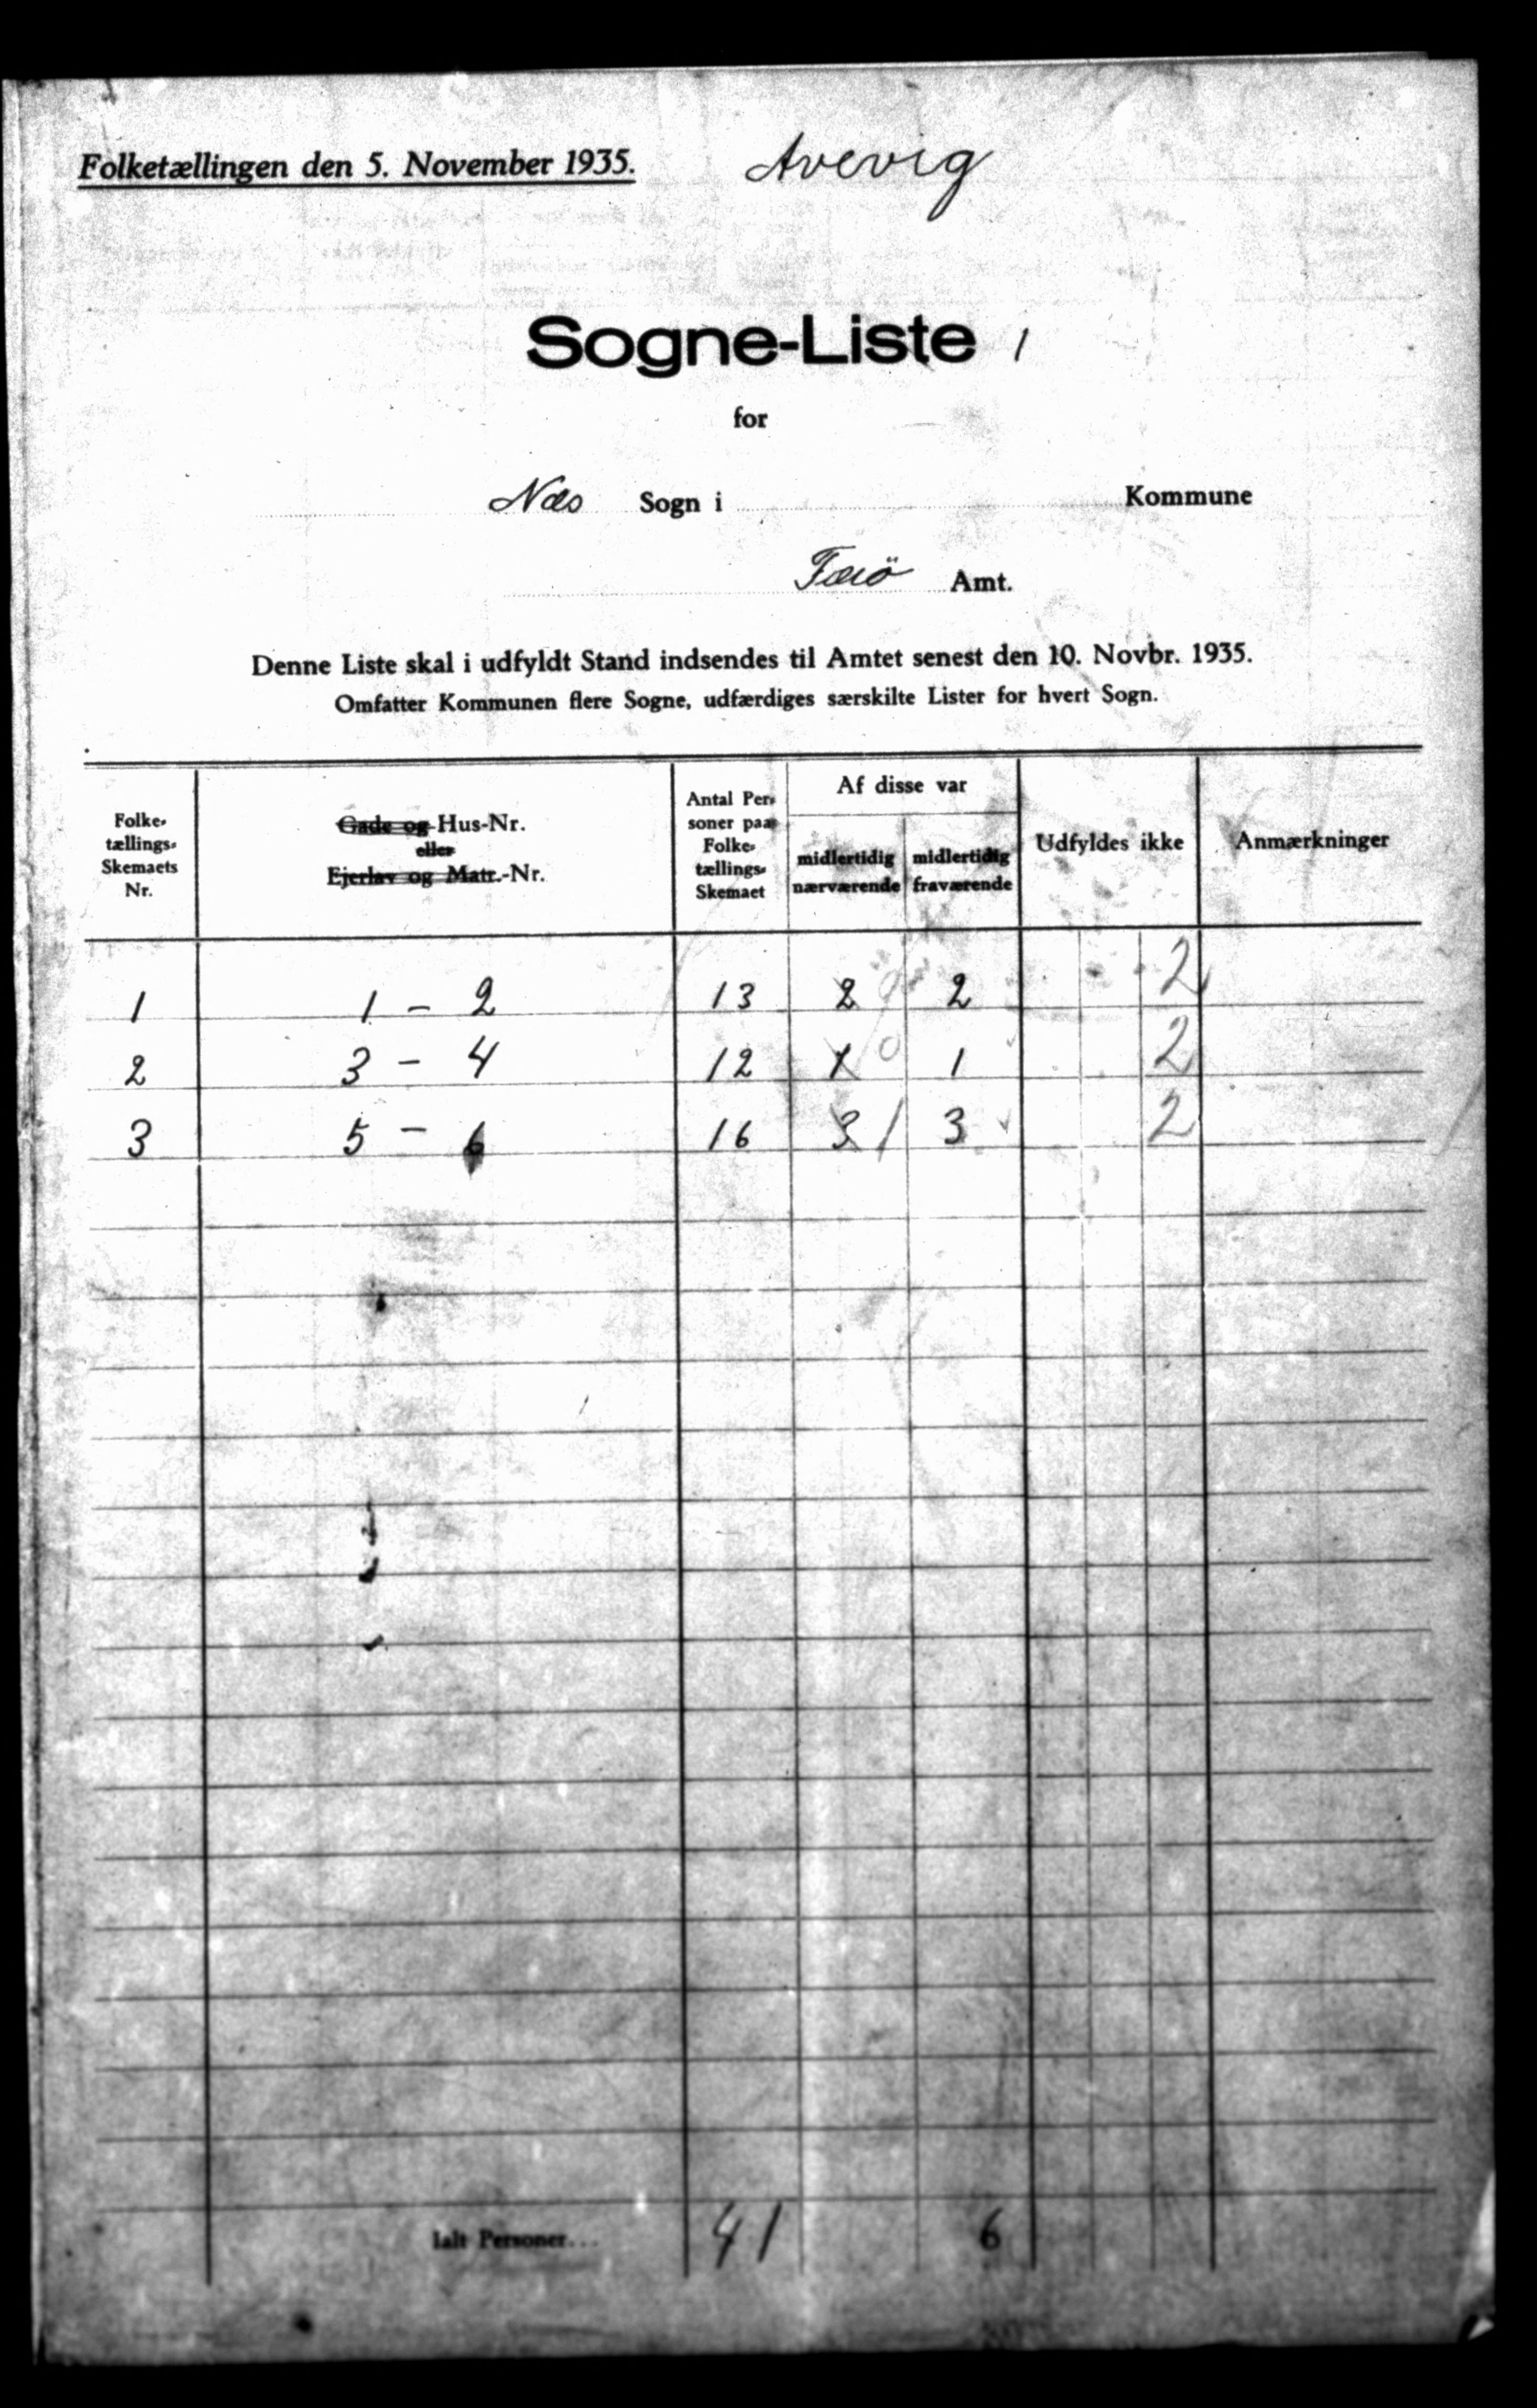 Folketællingen den 5. November 1935. Avevig
Sogne-Liste 1
for
Næs Sogn i Kommune
Færö Amt.
Denne Liste skal i udfyldt Stand indsendes til Amtet senest den 10. Novbr. 1935.
Omfatter Kommunen flere Sogne, udfærdiges særskilte Lister for hvert Sogn.
Folke-
tællings-
Skemaets
Nr.
Gade og Hus-Nr.
eller
Ejerlav og Matr.-Nr.
Antal Per-
soner paa
Folke-
tællings-
Skemaet
Af disse var
midlertidig
nærværende
midlertidig
fraværende
Udfyldes ikke
Anmærkninger
1 1 - 2 13 2 2 2
2 3 - 4 12 1 0 1 2
3 5 - 6 16 3 1 3 2
Ialt Personer... 41 6